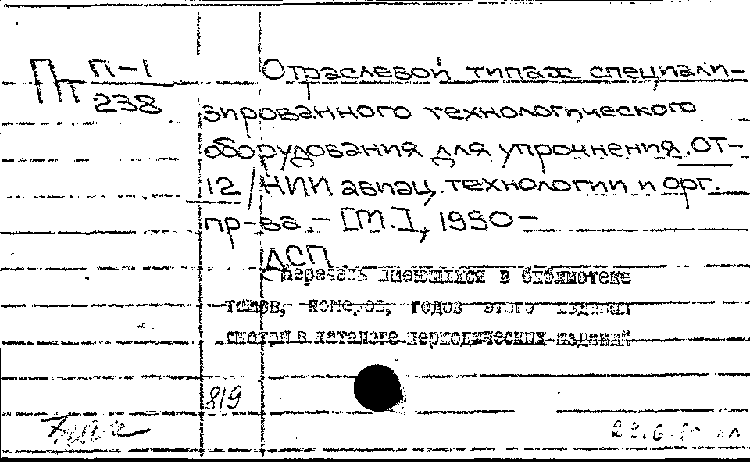 Пт П-1
238
Отраслевой типаж специали-
зированного технологического
оборудования для упрочнения. ОТ-
12 / НИИ авиац. технологии и орг.
пр-ва. - [М.], 1990-
ДСП
Перечень имеющихся в библиотеке
томов, номеров, годов этого издания
смотри в каталоге периодических изданий
819